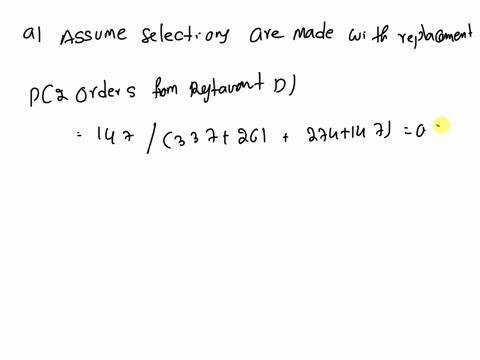 a) Assume selections are made with replacement
P(2 Orders from Restaurant D)
= 147 / (337+261 + 274+147) = 0